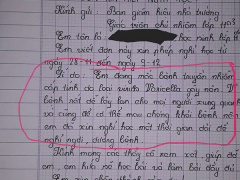 Kính gửi: Ban giám hiệu nhà trường
Giáo viên chủ nhiệm lớp
Em tên là học sinh lớp
Em viết đơn này xin phép nghỉ học từ
ngày 28-11 đến ngày 9-12
Lí do: Em đang mắc bệnh truyền nhiễm
cấp tính do loại virus Varicella gây nên. Đ
bệnh nót dễ lây lan cho mọi người xung quan
và cũng để có thể mau chóng khỏi bệnh nê
em đã xin nghỉ học một thời gian dài để
nghỉ ngơi, dưỡng bệnh.
Kính mong các thầy cô xem xét, giúp đỡ
em, em hứa sẽ học bài và làm bài đầy đủ